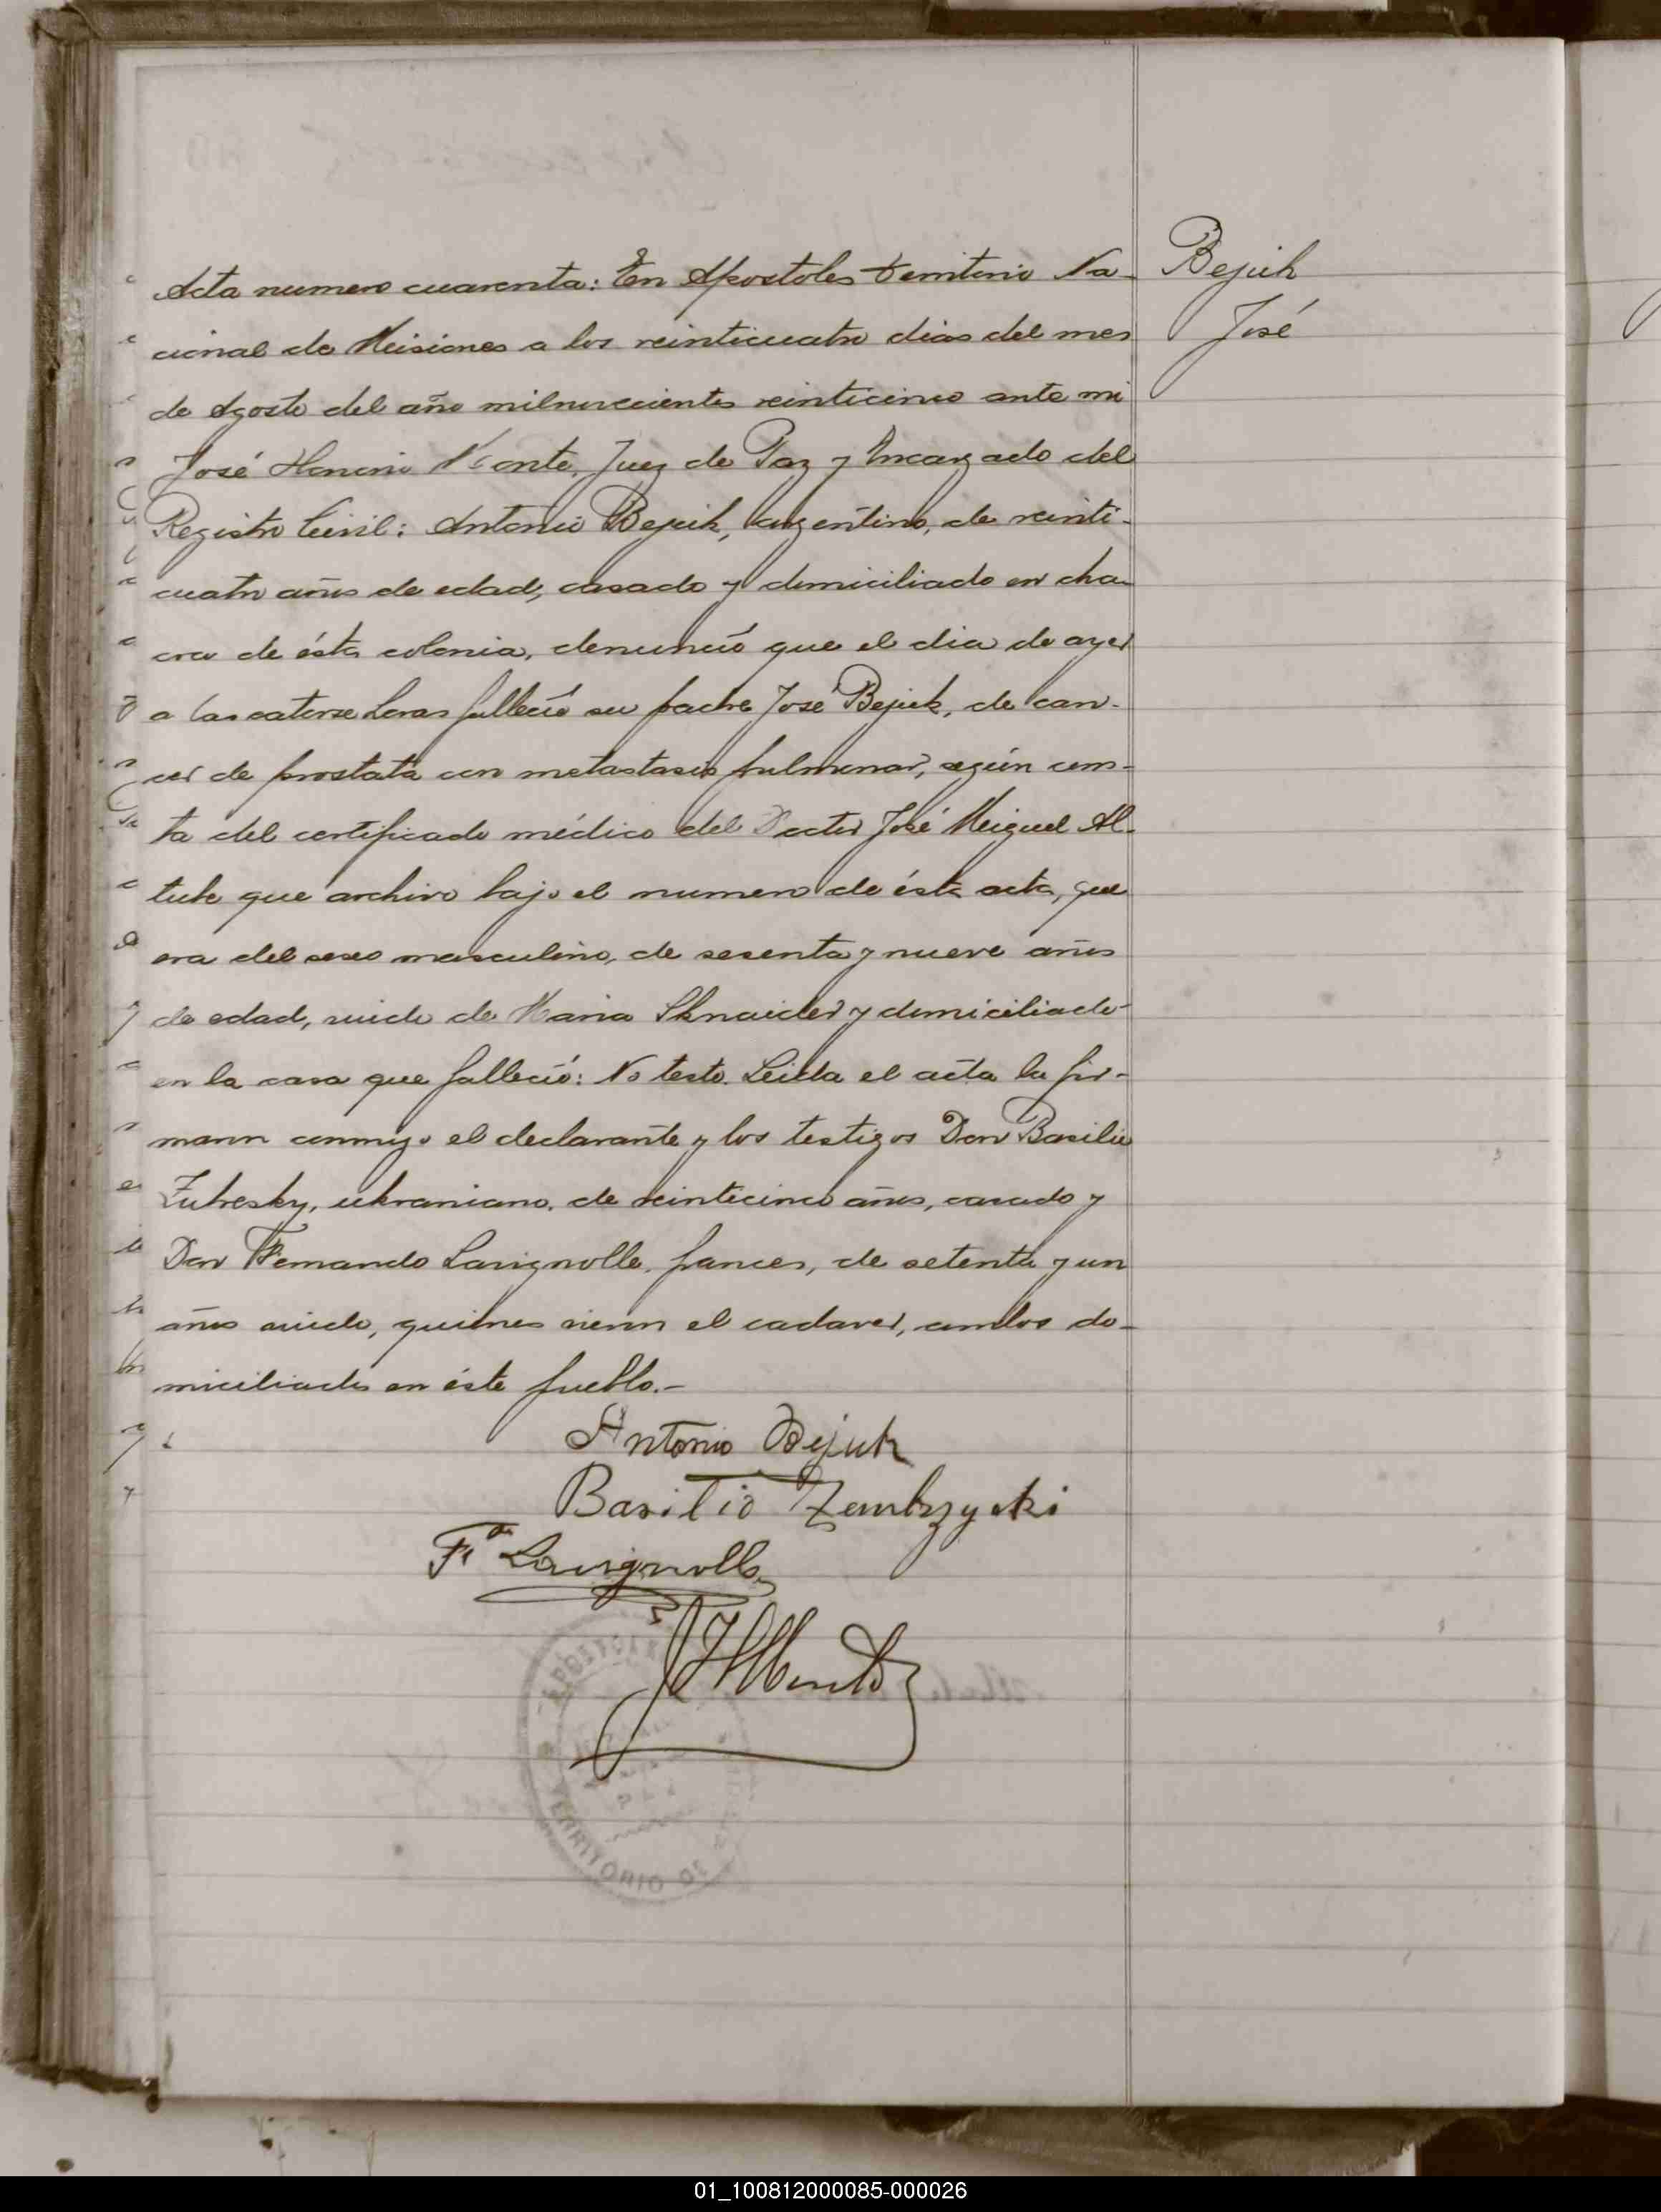 Bejuk
José
Acta numero cuarenta: En Apostoles territorio Na-
cional de Misiones a los veinticuatro dias del mes
de Agosto del año milnovecientos veinticinco ante mi
José Honorio Monte, Juez de Paz y Encargado del
Registro Civil: Antonio Bejuk, argentino, de veinti-
cuatro años de edad, casado y domiciliado en cha-
cra de ésta colonia, denunció que el dia de ayer
a las catorse horas falleció su padre José Bejuk, de can-
cer de prostata con metastasis pulmonar, según cons-
ta del certificado médico del Doctor José Miguel Al-
que archivo bajo el numero de ésta acta, que
era del sexo masculino, de sesenta y nueve años
de edad, viudo de Maria Sknaider y domiciliado
en la casa que falleció: No testo. Leida el acta la fir-
maron conmigo el declarante y los testigos Don Basilio
Zubresky, ukraniano, de veinticinco años, casado y
Don Fernando Lavignolle, frances, de setenta y un
años viudo, quienes vieron el cadaver, ambos do-
miciliados en éste pueblo.-
Antonio Bejuk
Basilio Zembrzycki
Fdo Lavignolle
JHMonte
APOSTOLES
TERRITORIO DE
01_100812000085-000026